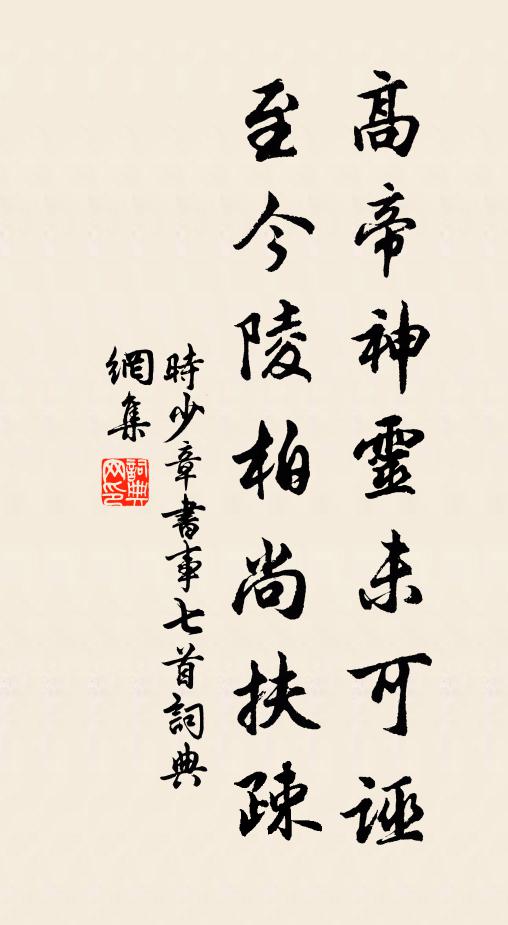 高帝神靈未可誣
至今陵柏尚扶疎
時少章書事七首詞典
網集
詞典网印